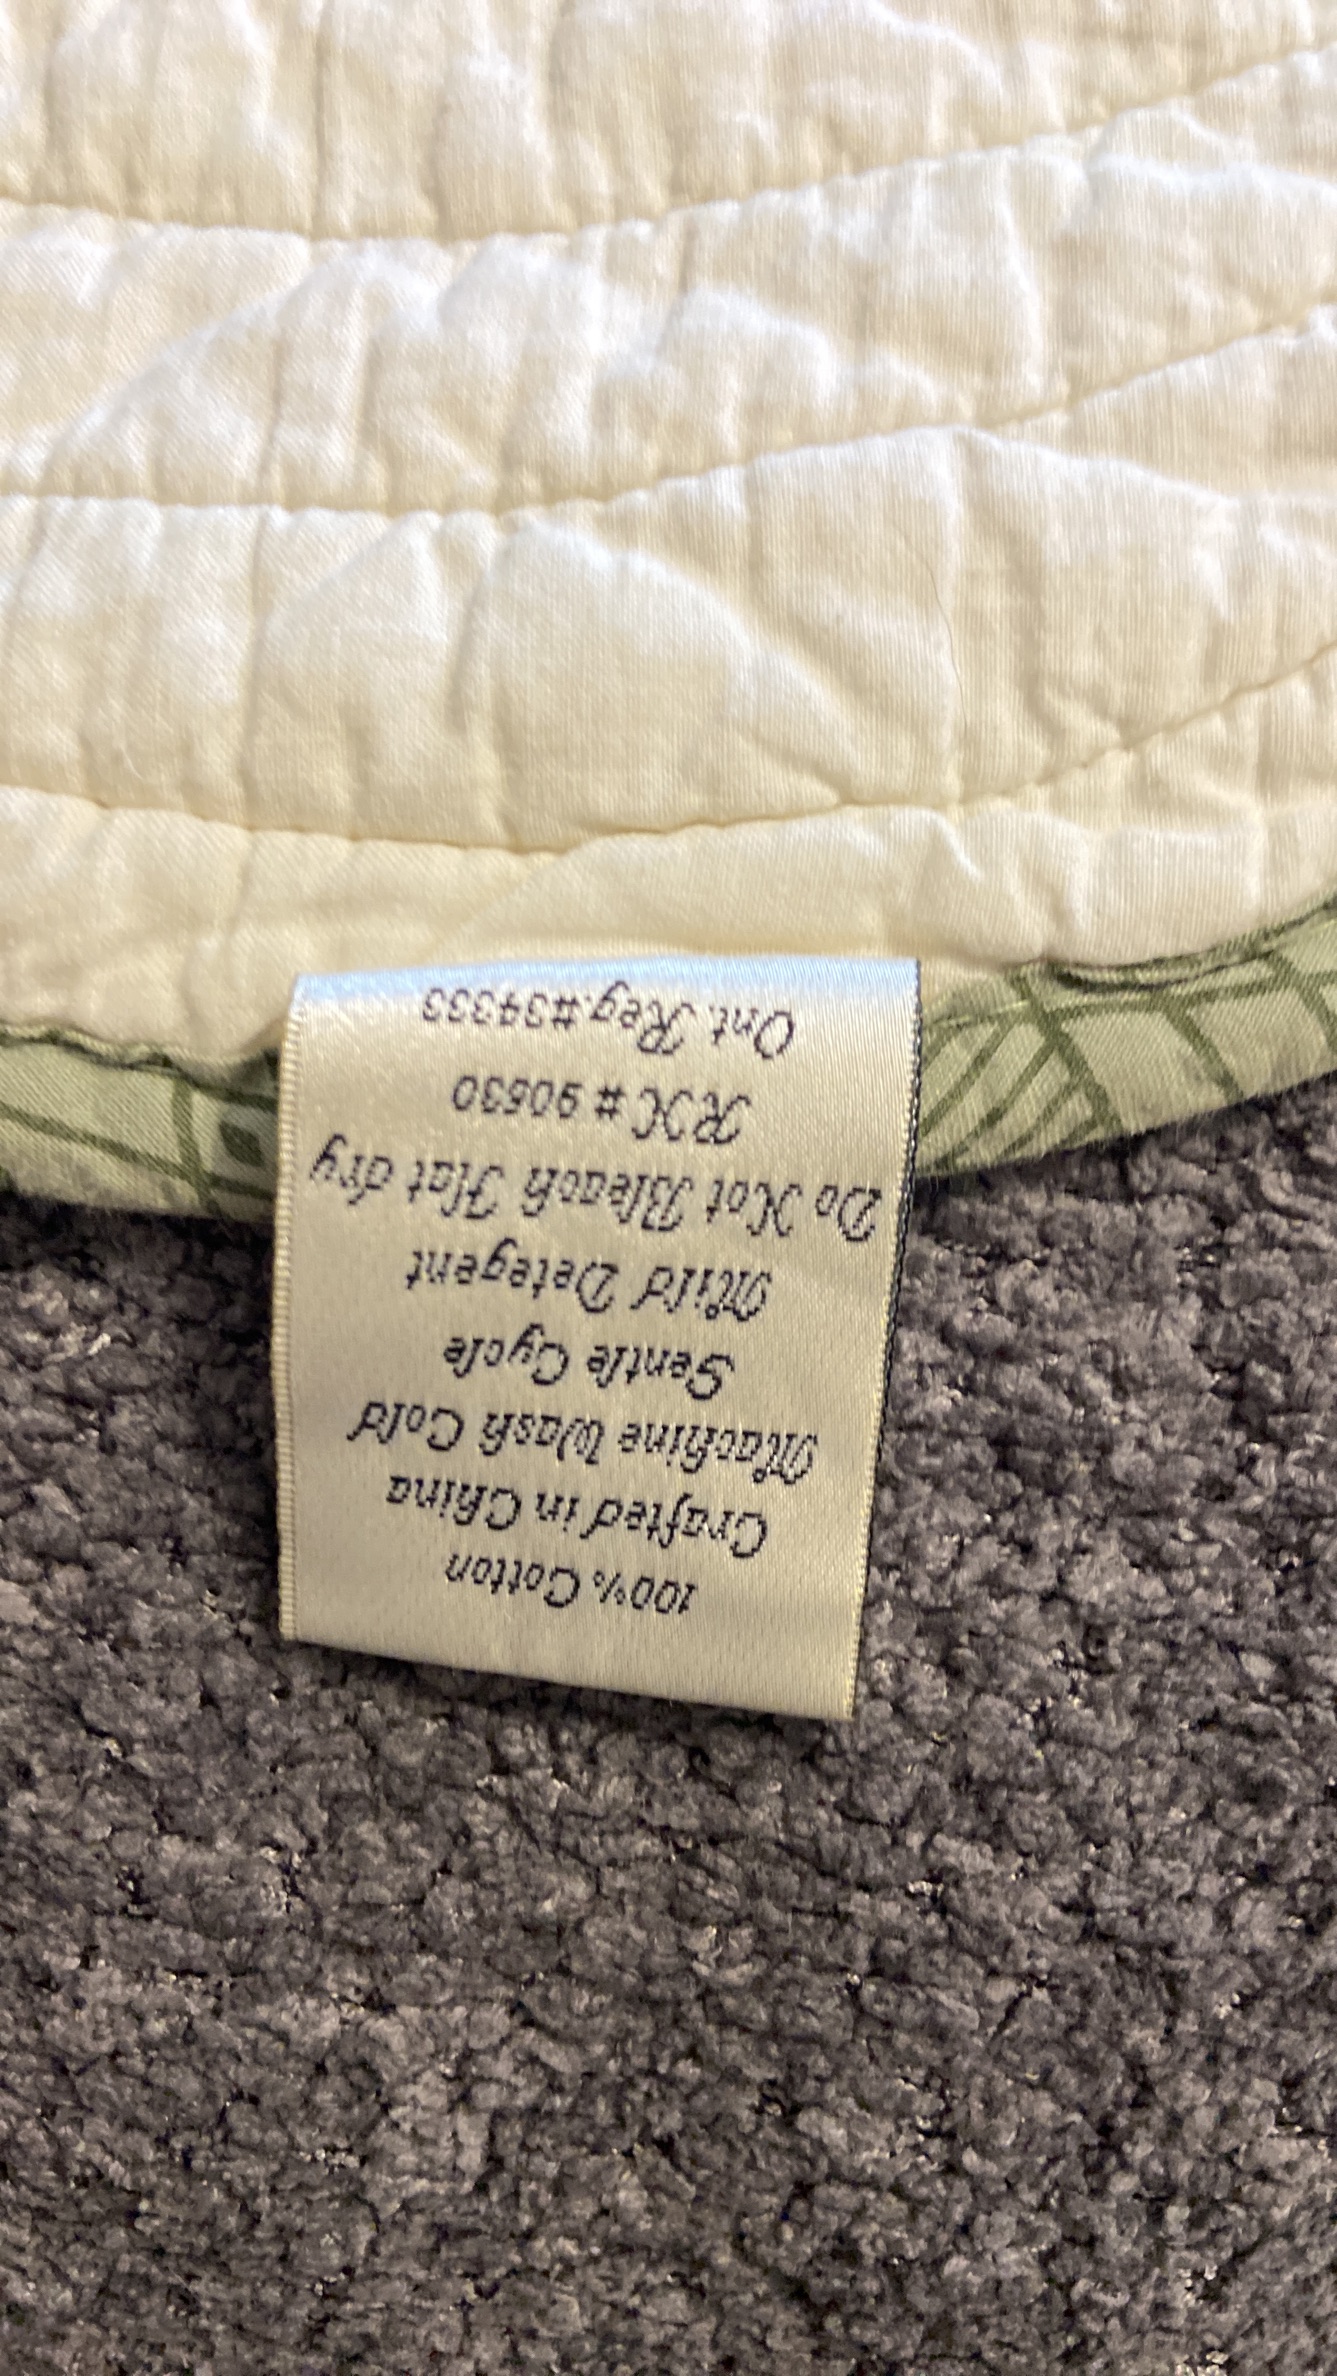 100% Cotton
Crafted in China
Machine Wash Cold
Gentle Cycle
Mild Detegent
Do Not Bleach Flat dry
RN # 90630
Ont. Reg.#34333